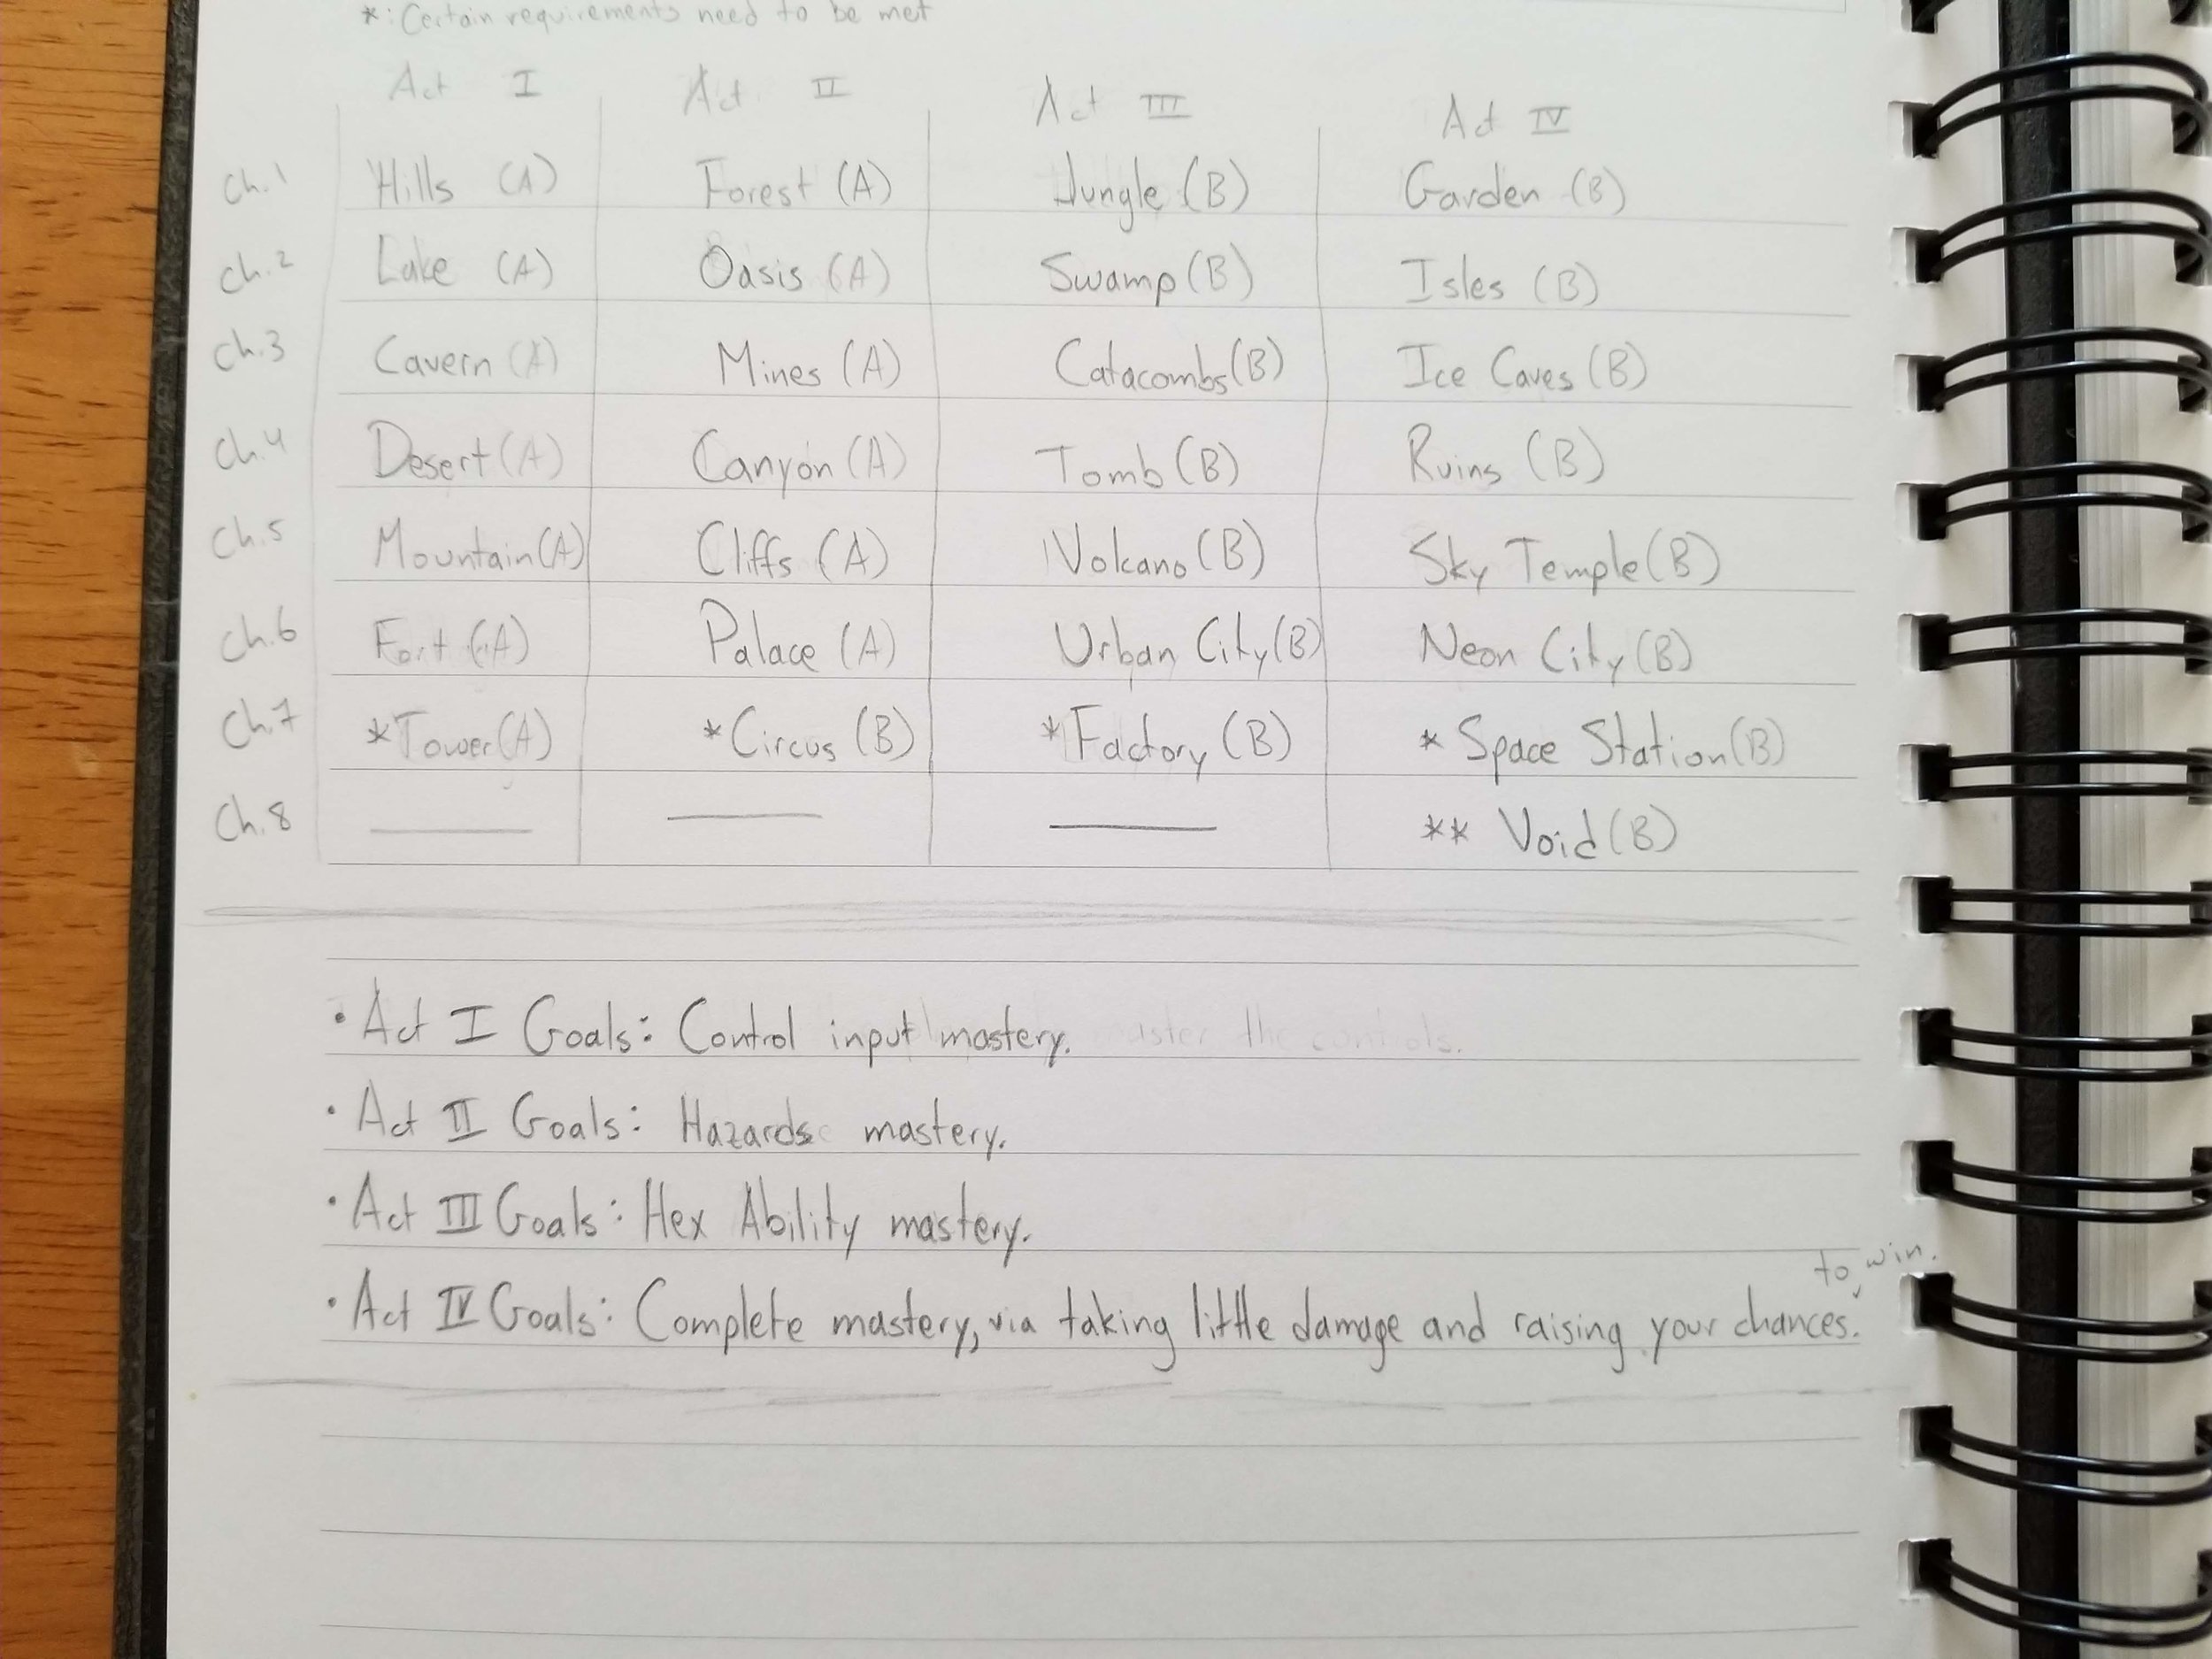 *: Certain requirements need to be met
Act I Act II Act III Act IV
Ch.1 Hills (A) Forest (A) Jungle (B) Garden (B)
Ch.2 Lake (A) Oasis (A) Swamp (B) Isles (B)
Ch.3 Cavern (A) Mines (A) Catacombs (B) Ice Caves (B)
Ch.4 Desert (A) Canyon (A) Tomb (B) Ruins (B)
Ch.5 Mountain (A) Cliffs (A) Volcano (B) Sky Temple (B)
Ch.6 Fort (A) Palace (A) Urban City (B) Neon City (B)
Ch.7 *Tower (A) *Circus (B) *Factory (B) * Space Station (B)
Ch.8 —— —— —— ** Void (B)
• Act I Goals: Control input mastery. the controls.
• Act II Goals: Hazards mastery.
• Act III Goals: Hex Ability mastery.
• Act IV Goals: Complete mastery, via taking little damage and raising your chances to win.